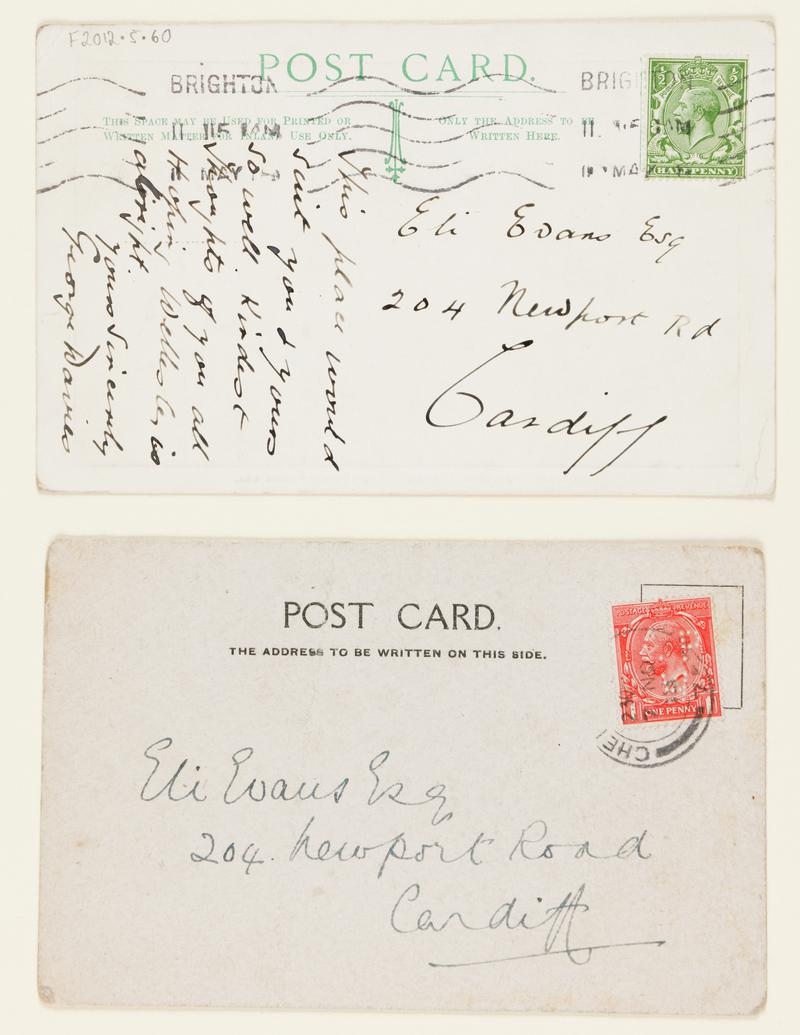 F2012.5.60
POST CARD.
BRIGHTON
11 115 AM
11 MAY 14
BRIG
11.
MA
THIS SPACE MAY BE USED FOR PRINTED OR
WRITTEN MATTER FOR INLAND USE ONLY.
ONLY THE ADDRESS TO BE
WRITTEN HERE.
½ ½
HALFPENNY
This place would
suit you & yours
so well. Kindest
thoughts of you all
Hoping Wellesley is
alright.
yours sincerely
George Davies
Eli Evans Esq
204 Newport Rd
Cardiff
POST CARD.
THE ADDRESS TO BE WRITTEN ON THIS SIDE.
POSTAGE REVENUE
1 ONE PENNY 1
CHE
Eli Evans Esq
204. Newport Road
Cardiff